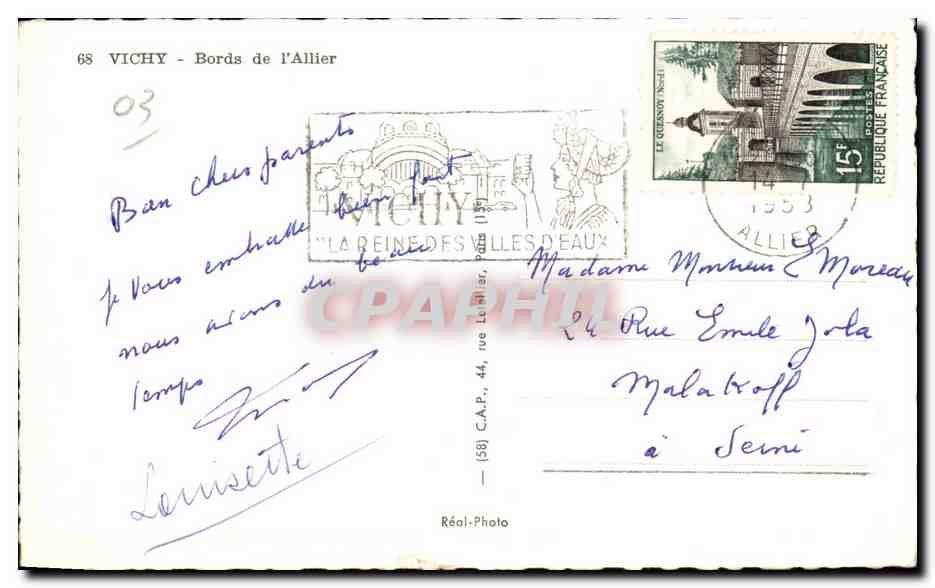 68 VICHY - Bords de l'Allier
03
Bien chers parents
je vous embrasse bien fort
nous avons du beau
temps
Louisette
VICHY
"LA REINE DES VILLES D'EAUX
LE QUESNOY (Nord)
15F
POSTES
RÉPUBLIQUE FRANÇAISE
1958
ALLIER
Madame Monsieur E Moreau
24 Rue Emile Zola
Malakoff
à Seine
— (58) C.A.P., 44, rue Letellier, Paris (15e)
CPAPHIL
Réal-Photo